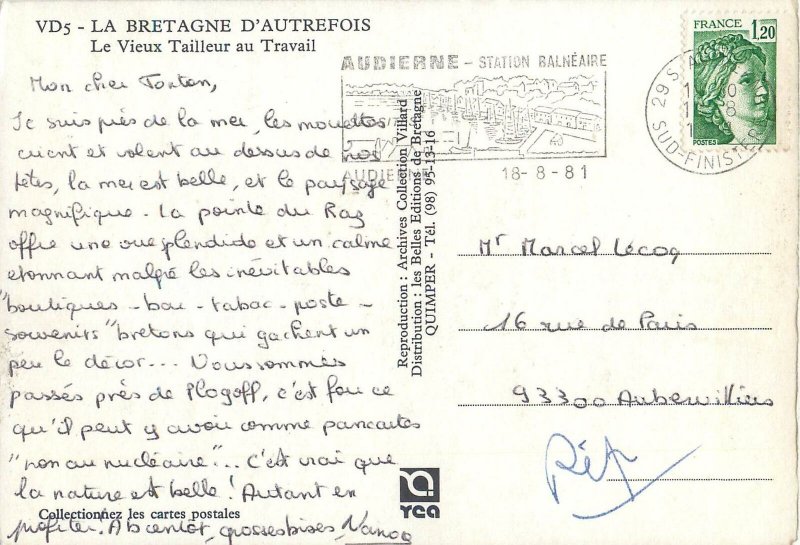 VD5 - LA BRETAGNE D'AUTREFOIS
Le Vieux Tailleur au Travail
Mon cher Tonton,
Je suis près de la mer, les mouettes
crient et volent au dessus de nos
têtes, la mer est belle, et le paysage
magnifique. La pointe du Raz
offre une vue splendide et un calme
etonnant malgré les inévitables
"boutiques - bar - tabac - poste -
souvenirs" bretons qui gachent un
peu le décor... Nous sommes
passés près de Plogoff, c'est fou ce
qu'il peut y avoir comme pancartes
"non au nucléaire"... C'est vrai que
la nature est belle! Autant en
profiter. A bientôt, grosses bises,
Collectionnez les cartes postales
Reproduction : Archives Collection Villard
Distribution : les Belles Editions de Bretagne
QUIMPER - Tél. (98) 95-13-16
yca
AUDIERNE - STATION BALNÉAIRE
AUDIERNE
18-8-81
29 S
SUD-FINIST
FRANCE 1,20
POSTES
Mr Marcel Lecoq
16 rue de Paris
93300 Aubervilliers